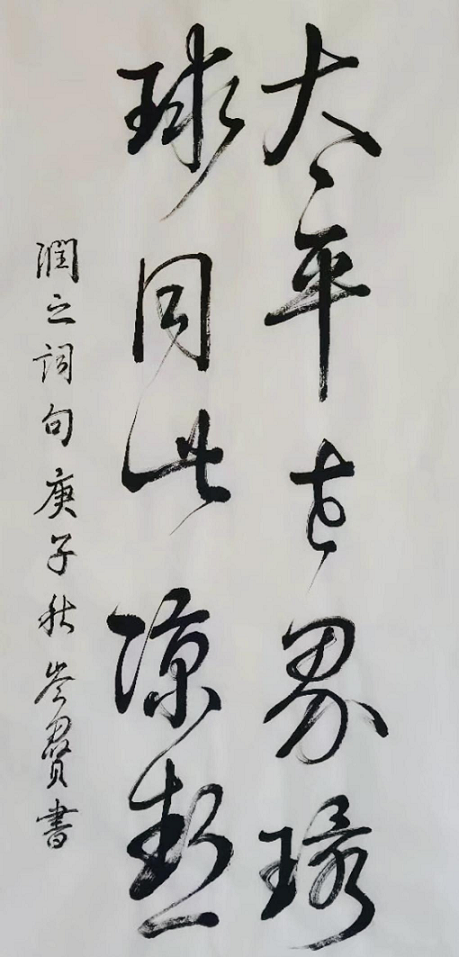 太平世界環
球同此凉熱
潤之詞句庚子秋岑賢書